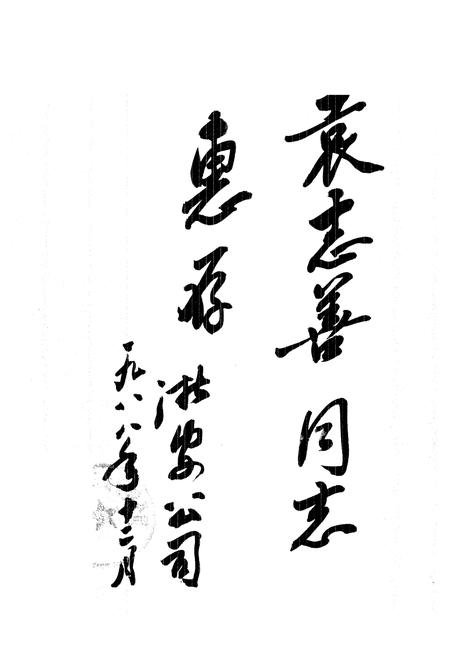 袁志善同志
惠存
淞安公司
一九八八年十二月